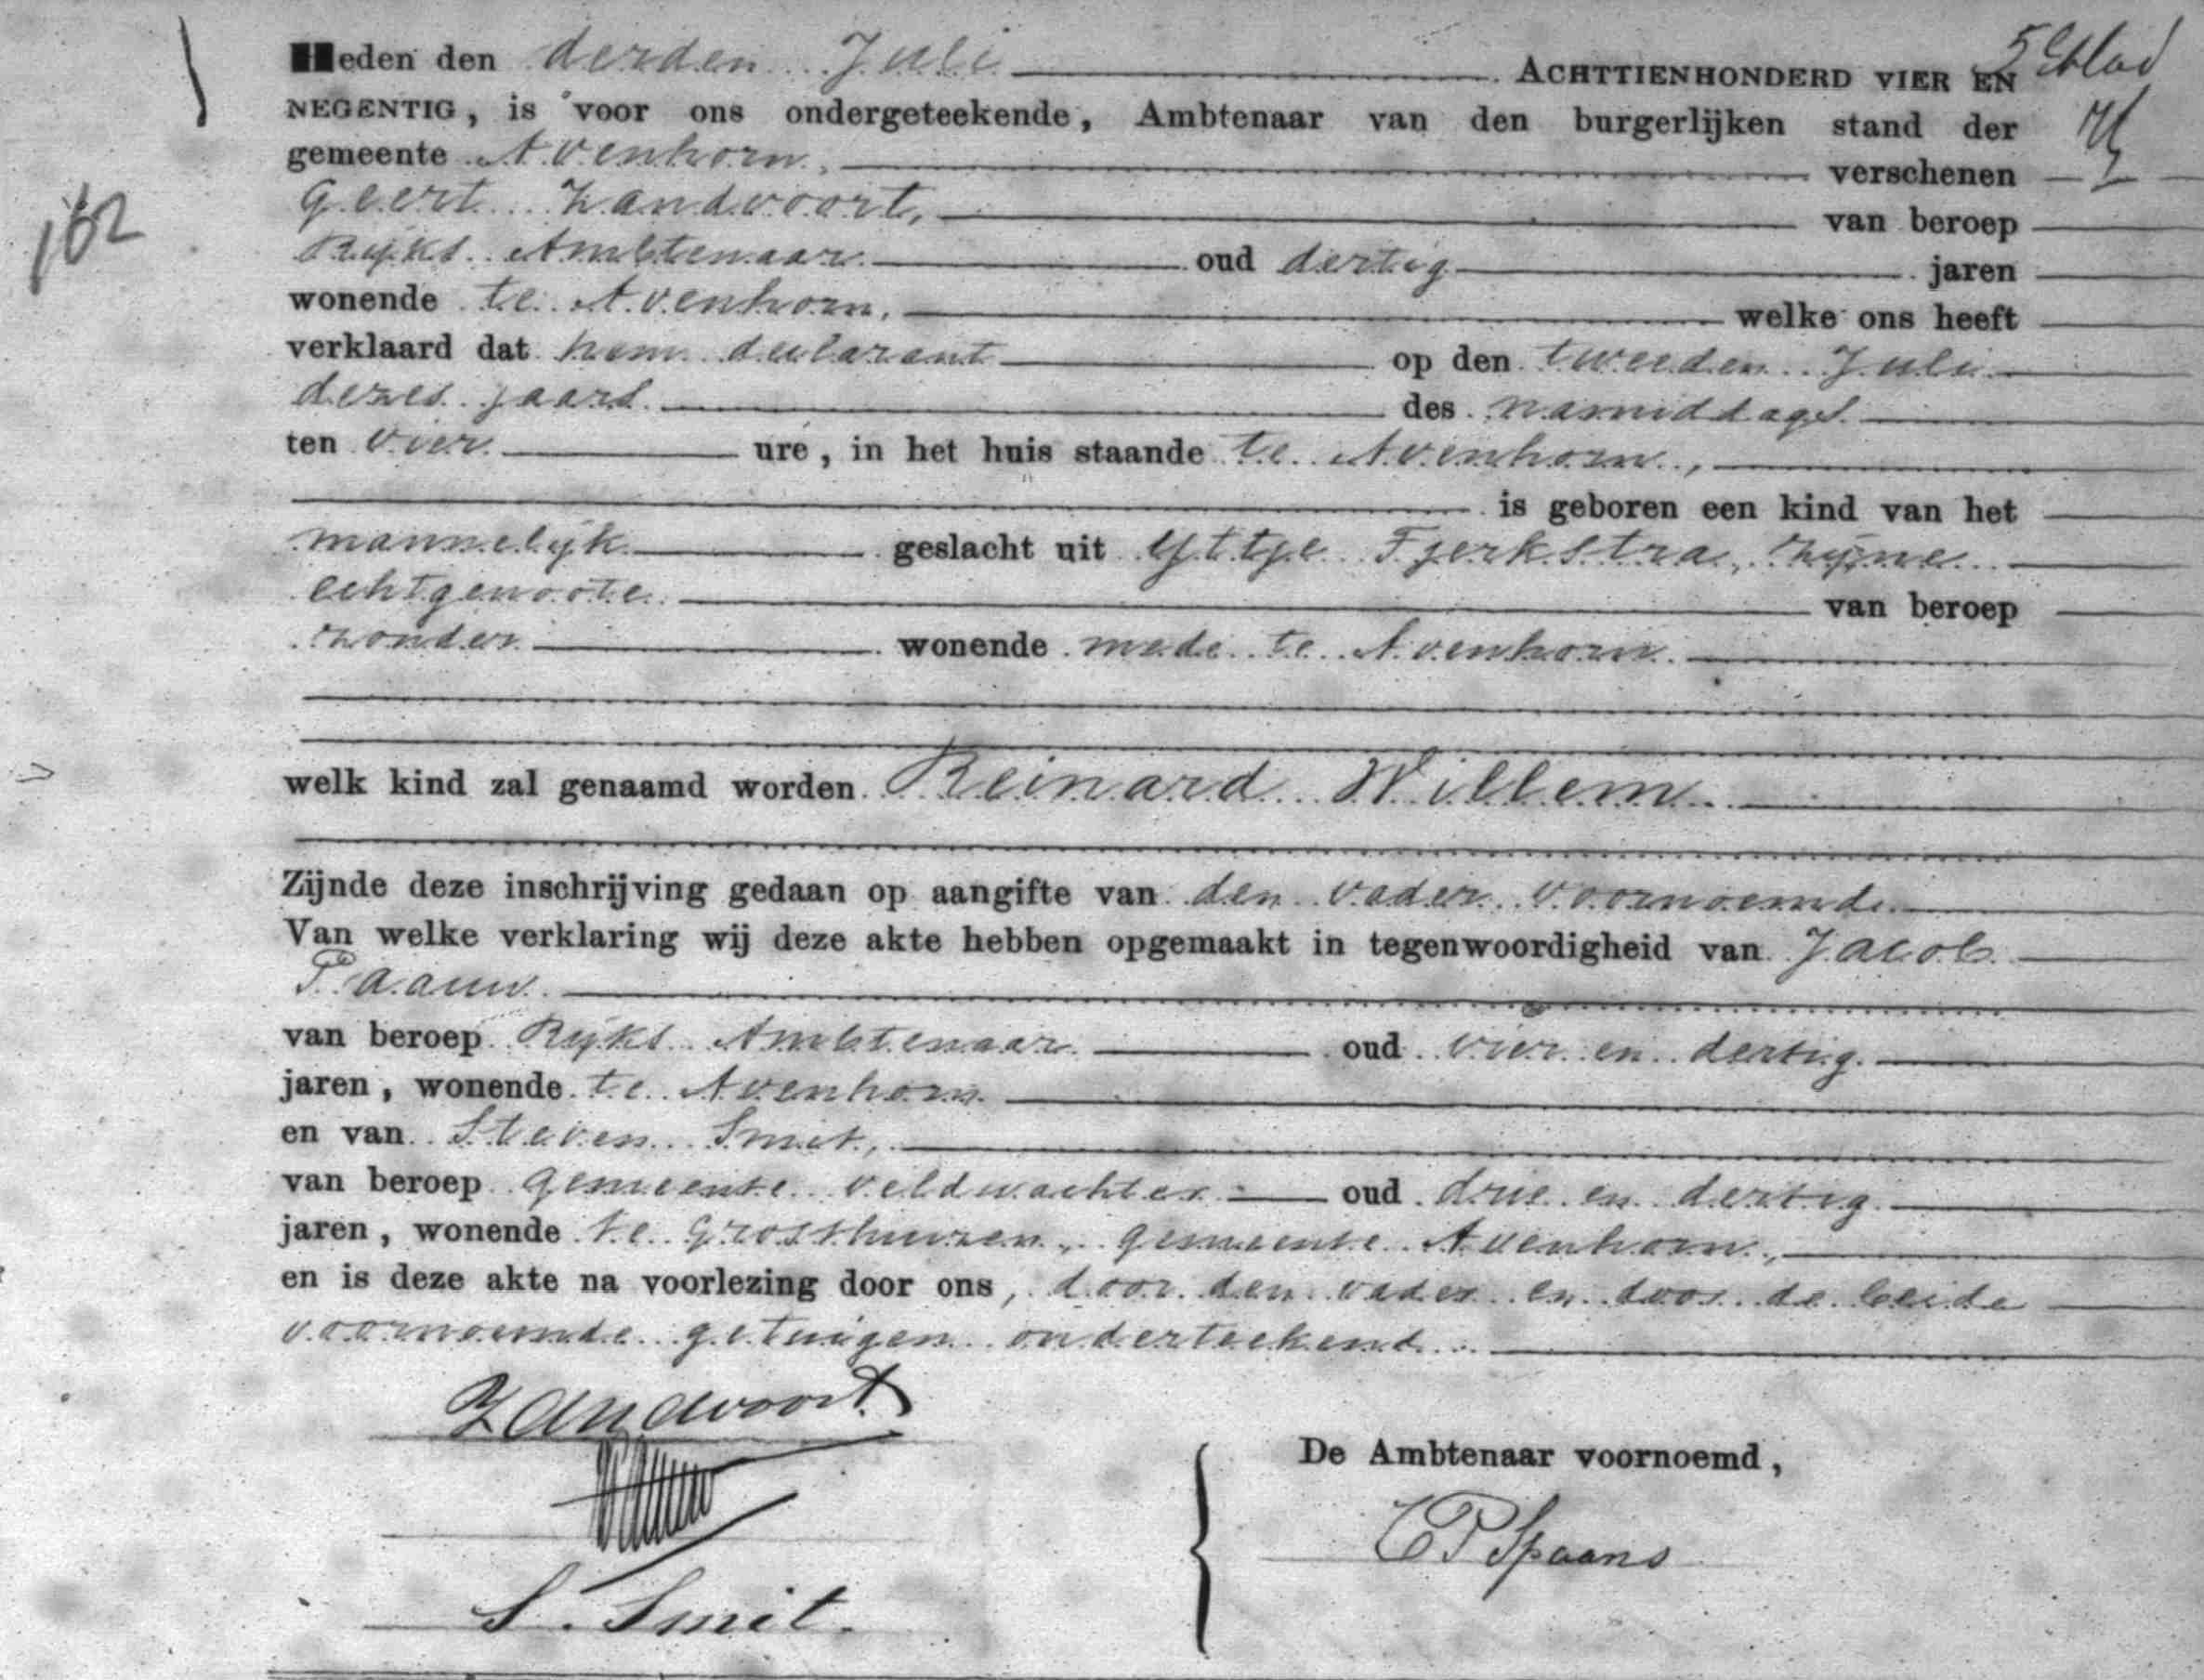 Heden den derden Juli ACHTTIENHONDERD VIER EN
5e blad
NEGENTIG, is voor ons ondergeteekende, Ambtenaar van den burgerlijken stand der
gemeente Avenhorn, verschenen
Geert Zandvoort, van beroep
162
Rijks Ambtenaar oud dertig jaren
wonende te Avenhorn, welke ons heeft
verklaard dat hem declarant op den tweeden Juli
dezes jaars des namiddags
ten vier ure, in het huis staande te Avenhorn,
is geboren een kind van het
mannelijk geslacht uit Yttje Tjerkstra, zijne
echtgenoote van beroep
zonder wonende mede te Avenhorn
welk kind zal genaamd worden Reinard Willem
Zijnde deze inschrijving gedaan op aangifte van den vader voornoemd
Van welke verklaring wij deze akte hebben opgemaakt in tegenwoordigheid van Jacob
Paauw
van beroep Rijks Ambtenaar oud vier en dertig
jaren, wonende te Avenhorn
en van Steven Smit,
van beroep gemeente veldwachter oud drie en dertig
jaren, wonende te Grosthuizen, gemeente Avenhorn,
en is deze akte na voorlezing door ons, door den vader en door de beide
voornoemde getuigen onderteekend.
Zandvoort
Paauw
De Ambtenaar voornoemd,
C P Spaans
S. Smit.